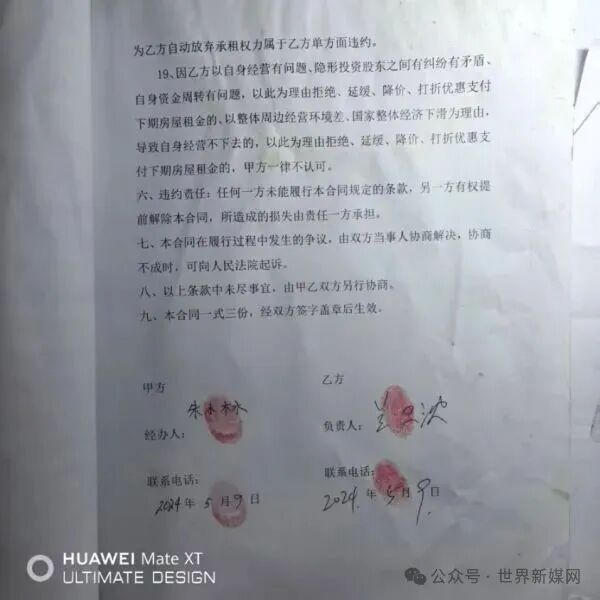 为乙方自动放弃承租权力属于乙方单方面违约。
19、因乙方以自身经营有问题、隐形投资股东之间有纠纷有矛盾、
自身资金周转有问题，以此为理由拒绝、延缓、降价、打折优惠支付
下期房屋租金的、以整体周边经营环境差、国家整体经济下滑为理由，
导致自身经营不下去的，以此为理由拒绝、延缓、降价、打折优惠支
付下期房屋租金的，甲方一律不认可。
六、违约责任：任何一方未能履行本合同规定的条款，另一方有权提
前解除本合同，所造成的损失由责任一方承担。
七、本合同在履行过程中发生的争议，由双方当事人协商解决，协商
不成时，可向人民法院起诉。
八、以上条款中未尽事宜，由甲乙双方另行协商。
九、本合同一式三份，经双方签字盖章后生效。
甲方
乙方
经办人：
负责人：
联系电话：
联系电话：
2024 年 5 月 9 日
2024. 年 5 月 9 日
HUAWEI Mate XT
ULTIMATE DESIGN
公众号·世界新媒网